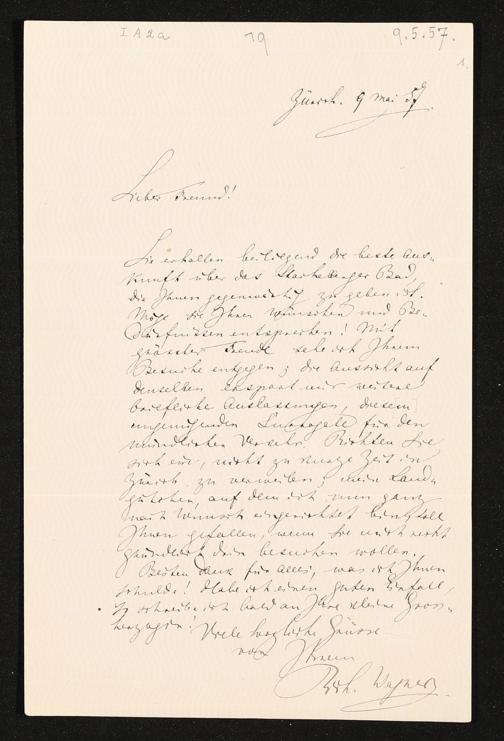 I A 2a
19
9.5.57.
1.
Zürich. 9 Mai 57
Lieber Freund!
Sie erhalten beiliegend die beste Aus-
kunft über das Stachelberger Bad,
die Ihnen gegenwärtig zu geben ist.
Möge sie Ihren Wünschen und Be-
dürfnissen entsprechen! Mit
grösster Freude sehe ich Ihrem
Besuche entgegen; die Aussicht auf
denselben erspart mir weitere
briefliche Auslassungen, diesem
ungenügenden Surrogate für den
mündlichen Verkehr. Richten Sie
sich ein, nicht zu kurze Zeit in
Zürich zu verweilen; mein Land-
gütchen, auf dem ich nun ganz
nach Wunsch eingerichtet bin, soll
Ihnen gefallen, wenn Sie mich recht
gründlich drin besuchen wollen.
Besten Dank für alles, was ich Ihnen
schulde! Habe ich einen guten Einfall,
so schreibe ich bald an Ihre kleine Gross-
herzogin! Viele herzliche Grüsse
von Ihrem
Rich. Wagner